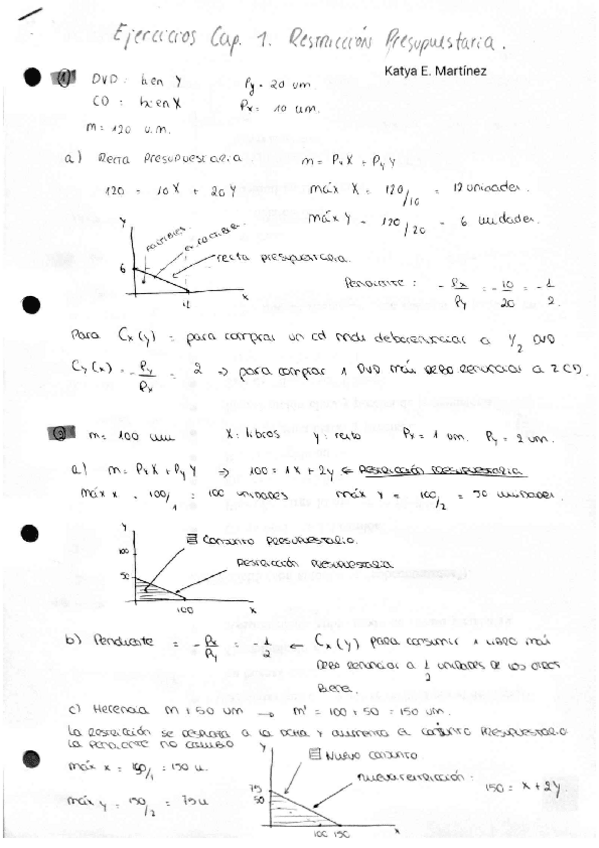 Ejercicios Cap. 1. Restricción Presupuestaria.
Katya E. Martínez
① DVD: bien Y Py = 20 um.
CD : bien X Px = 10 um.
m = 120 u.m.
a) Recta Presupuestaria. m = PxX + PyY
120 = 10X + 20Y máx X = 120/10 = 12 unidades.
máx Y = 120/20 = 6 unidades.
Y
recta presupuestaria.
6
12
x
Pendiente: - Px/Py = - 10/20 = - 1/2.
Para Cx(y) = para comprar un cd más debo renunciar a 1/2 DVD
Cy(x) = - Py/Px = 2 ⇒ para comprar 1 DVD más debo renunciar a 2 CD.
② m = 100 um X = libros y = resto Px = 1 um. Py = 2 um.
a) m = PxX + PyY ⇒ 100 = 1X + 2y ← Restricción presupuestaria
máx x = 100/1 = 100 unidades máx y = 100/2 = 50 unidades.
Y
Conjunto presupuestario.
100
Restricción presupuestaria
50
100
x
b) Pendiente = - Px/Py = - 1/2 ← Cx(y) para consumir 1 libro más
debo renunciar a 1/2 unidades de los otros
bienes.
c) Herencia m = 50 um → m' = 100 + 50 = 150 um.
La restricción se desplaza a la dcha y aumenta el conjunto presupuestario
la pendiente no cambia
Y
Nuevo conjunto
máx x = 150/1 = 150 u.
75
nueva restricción: 150 = x + 2y.
50
máx y = 150/2 = 75 u
100 150
x